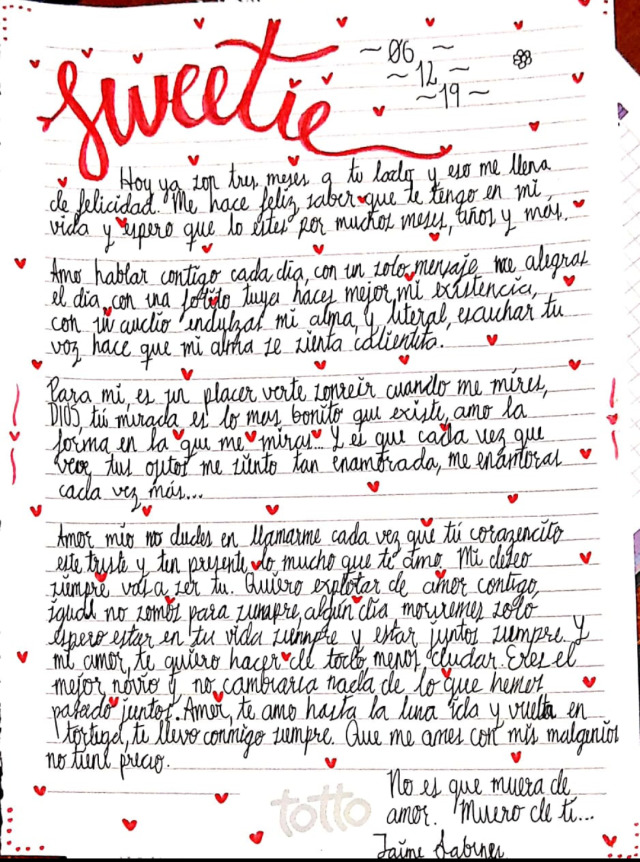 sweetie
~ 06 ~
~ 12 ~
~ 19 ~
Hoy ya son tres meses a tu lado y eso me llena
de felicidad. Me hace feliz saber que te tengo en mi
vida y espero que lo estes por muchos meses, años y más.
Amo hablar contigo cada dia, con un solo mensaje me alegras
el dia, con una fotito tuya haces mejor mi existencia,
con un audio endulzas mi alma, y literal, escuchar tu
voz hace que mi alma se sienta calientita.
Para mi, es un placer verte sonreir cuando me mires,
DIOS, tú mirada es lo mas bonito que existe, amo la
forma en la que me miras... Y es que cada vez que
veoe tus ojitos me siento tan enamorada, me enamoras
cada vez más...
Amor mio no dudes en llamarme cada vez que tú corazoncito
este triste y ten presente lo mucho que te amo. Mi deseo
siempre vas a ser tu. Quiero explotar de amor contigo,
igual no somos para siempre, algún dia moriremos solo
espero estar en tu vida siempre y estar juntos siempre. Y
mi amor, te quiero hacer de todo, menos dudar. Eres el
mejor novio y no cambiaria nada de lo que hemos
pasado juntos. Amor, te amo hasta la luna ida y vuelta en
tortuga, te llevo conmigo siempre. Que me ames con mis malgenios
no tiene precio.
No es que muera de
amor. Muero de ti...
Jaime Sabines
totto